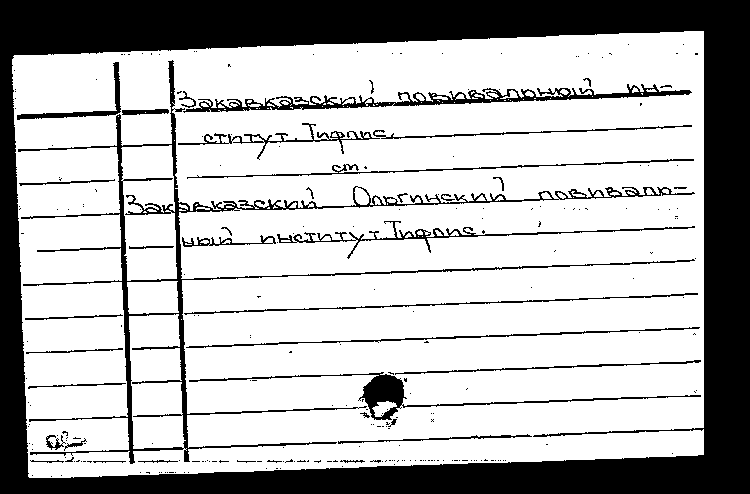 Закавказский повивальный ин-
ститут. Тифлис.
ст.
Закавказский Ольгинский повиваль-
ный институт. Тифлис.